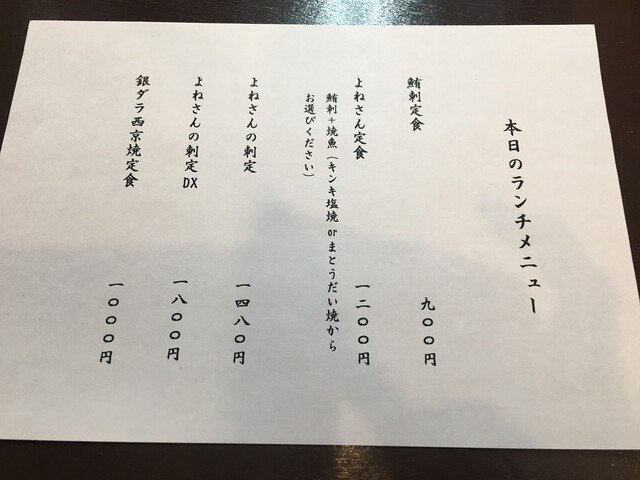 本日のランチメニュー
鮪刺定食
九〇〇円
よねさん定食
一二〇〇円
鮪刺＋焼魚（キンキ塩焼 or まとうだい焼から
お選びください）
よねさんの刺定
一四八〇円
よねさんの刺定DX
一八〇〇円
銀ダラ西京焼定食
一〇〇〇円